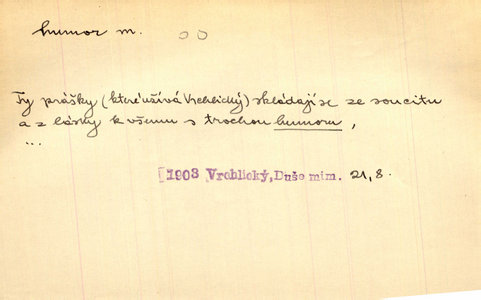 humor m.
Ty prášky (které užívá Vrchlický) skládají se ze soucitu
a z lásky k všemu s trochou humoru,
...
[1903 Vrchlický, Duše mim. 21, 8.